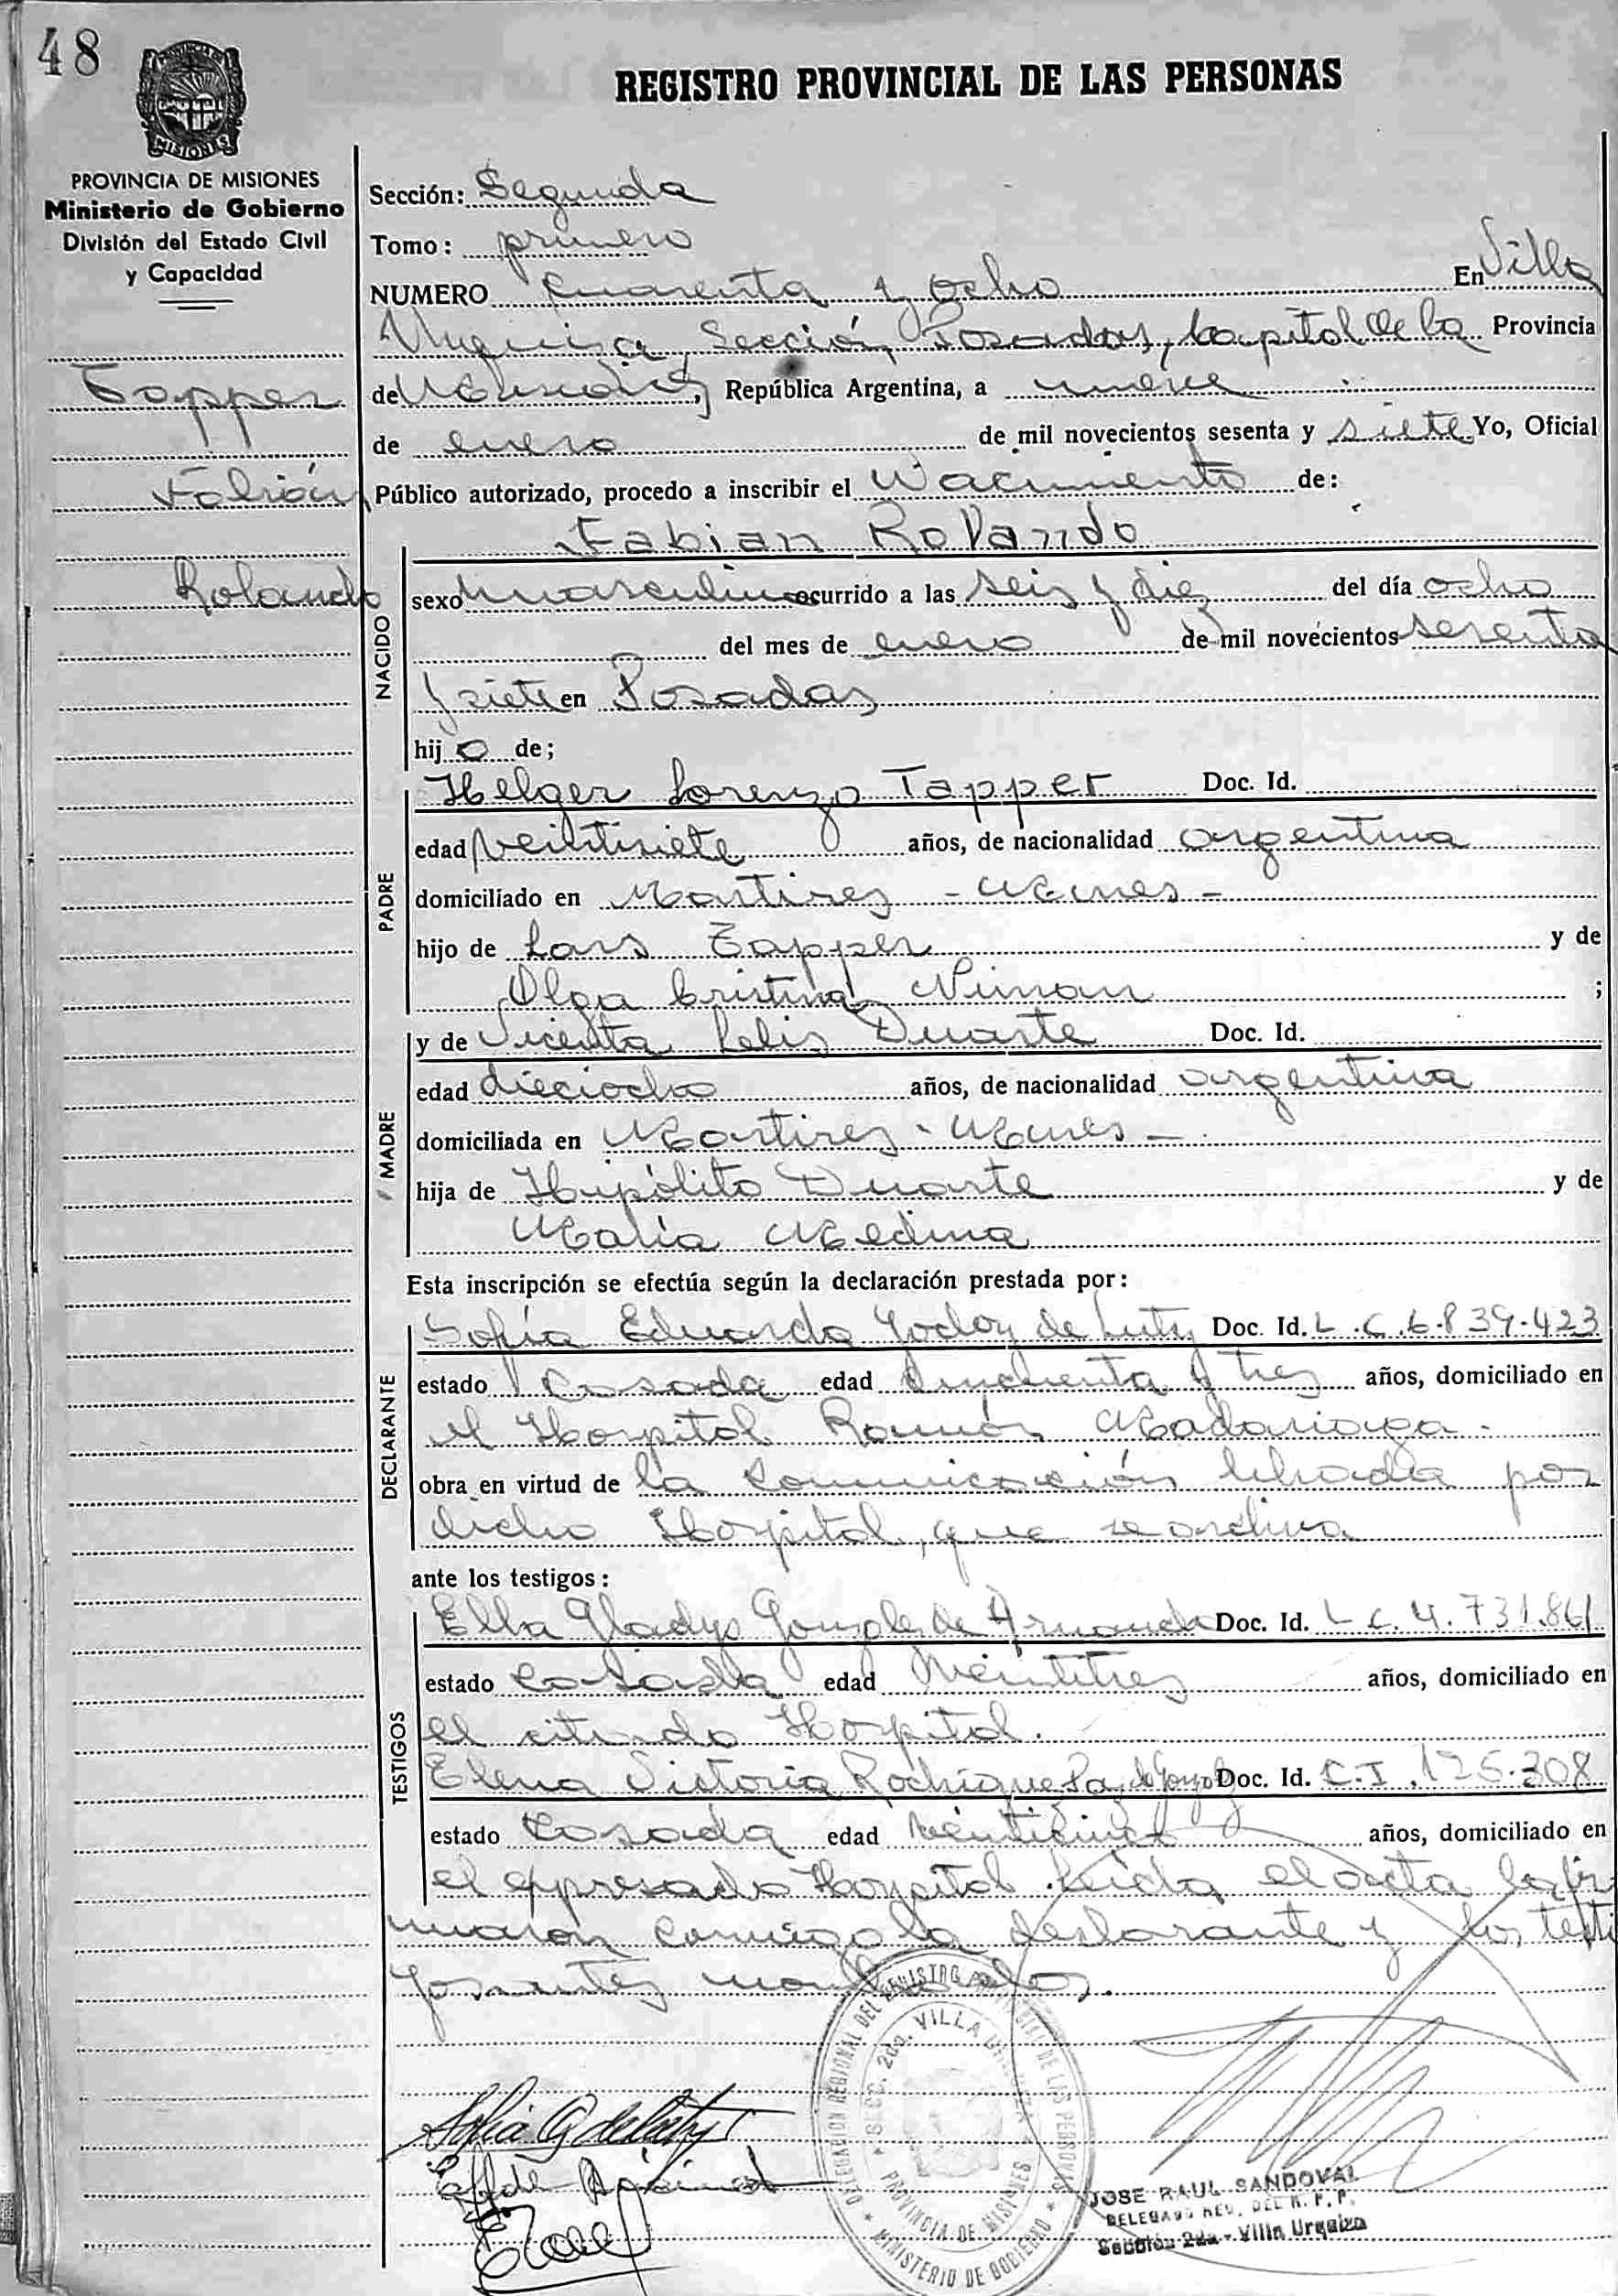 48
PROVINCIA DE
MISIONES
REGISTRO PROVINCIAL DE LAS PERSONAS
PROVINCIA DE MISIONES
Ministerio de Gobierno
División del Estado Civil
y Capacidad
Tapper
Fabián
Rolando
Sección: Segunda
Tomo: primero
NUMERO cuarenta y ocho En Villa
Urquiza, Sección Posadas, Capital de la Provincia
de Misiones, República Argentina, a nueve
de enero de mil novecientos sesenta y siete Yo, Oficial
Público autorizado, procedo a inscribir el Nacimiento de:
Fabian Rolando
NACIDO
sexo masculino ocurrido a las seis y diez del día ocho
del mes de enero de mil novecientos sesenta
y siete en Posadas
hijo de;
PADRE
Helger Lorenzo Tapper Doc. Id.
edad veintisiete años, de nacionalidad argentina
domiciliado en Martires - Mnes -
hijo de Lars Tapper y de
Olga Cristina Niman ;
MADRE
y de Vicenta Felis Duarte Doc. Id.
edad dieciocho años, de nacionalidad argentina
domiciliada en Martires - Mnes -
hija de Hipólito Duarte y de
María Medina
Esta inscripción se efectúa según la declaración prestada por:
DECLARANTE
Sofía Eduarda Godoy de Doc. Id. L.C. 6.839.423
estado casada edad cincuenta y tres años, domiciliado en
el Hospital Ramón Madariaga.
obra en virtud de la comunicación librada por
dicho Hospital, que se archiva
ante los testigos:
TESTIGOS
Elba Gladys de Doc. Id. L.C. 4.731.861
estado casada edad veintitres años, domiciliado en
el citado Hospital.
Elena Victoria Doc. Id. C.I. 126.308
estado casada edad veinticinco años, domiciliado en
el expresado Hospital. Leída el acta la fir
maron conmigo la declarante y los testi
gos antes nombrados.
DELEGACION REGIONAL DEL REGISTRO PROVINCIAL DE LAS PERSONAS
SECC. 2da. VILLA URQUIZA
PROVINCIA DE MISIONES
MINISTERIO DE GOBIERNO
JOSE RAUL SANDOVAL
DELEGADO REG. DEL R. P. P.
Sección 2da - Villa Urquiza